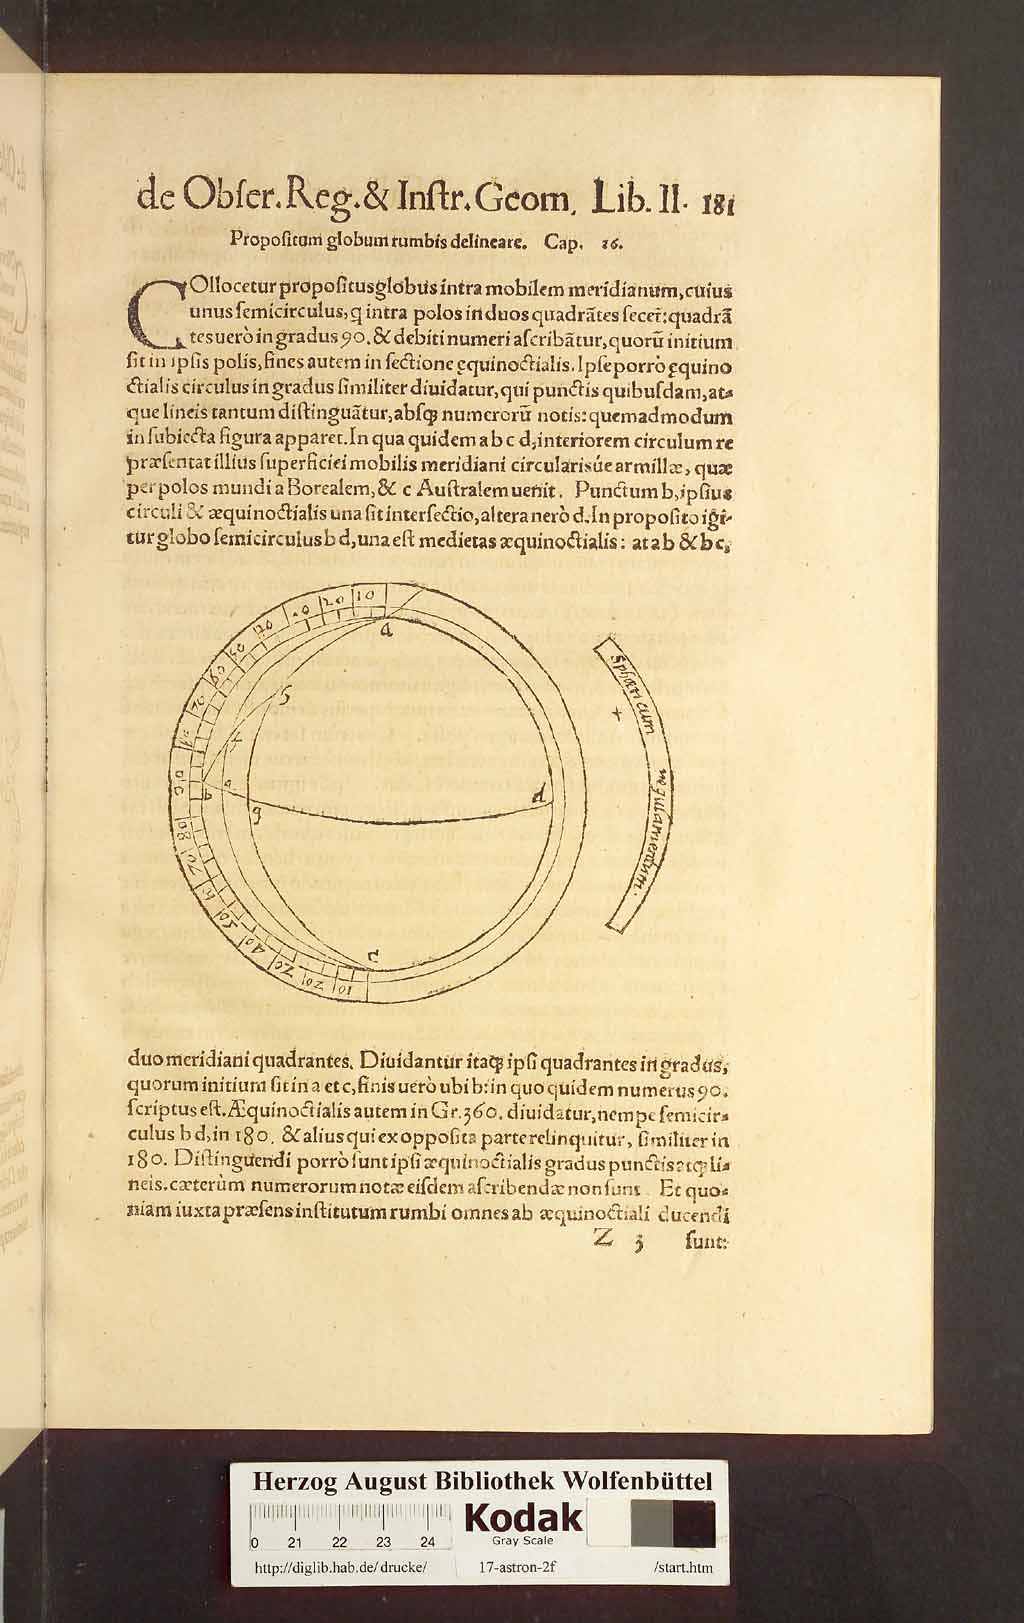 de Obſer. Reg. & Inſtr. Geom. Lib. II. 181
Propoſitum globum rumbis delineare. Cap. 16.
COllocetur propoſitus globus intra mobilem meridianum, cuius
unus ſemicirculus, q intra polos in duos quadrātes ſecet: quadrā
tes uerò in gradus 90. & debiti numeri aſcribātur, quorū initium
ſit in ipſis polis, fines autem in ſectione ęquinoctialis. Ipſe porrò ęquino
ctialis circulus in gradus ſimiliter diuidatur, qui punctis quibuſdam, at-
que lineis tantum diſtinguātur, abſq̃ numerorū notis: quemadmodum
in ſubiecta figura apparet. In qua quidem a b c d, interiorem circulum re
præſentat illius ſuperficiei mobilis meridiani circularisúe armillæ, quæ
per polos mundi a Borealem, & c Auſtralem uenit. Punctum b, ipſius
circuli & æquinoctialis una ſit interſectio, altera nerò d. In propoſito igi-
tur globo ſemicirculus b d, una eſt medietas æquinoctialis: at a b & b c,
10
20
a
70
50
60
70
5
b
g
d
80
70
50
40
20
10
c
Sphæricum
regulamentum.
duo meridiani quadrantes. Diuidantur itaq̃ ipſi quadrantes in gradus,
quorum initium ſit in a et c, finis uerò ubi b: in quo quidem numerus 90.
ſcriptus eſt. Æquinoctialis autem in Gr. 360. diuidatur, nempe ſemicir-
culus b d, in 180. & alius qui ex oppoſita parte relinquitur, ſimiliter in
180. Diſtinguendi porrò ſunt ipſi æquinoctialis gradus punctis atq̃ li-
neis. cæterùm numerorum notæ eiſdem aſcribendæ non ſunt. Et quo-
niam iuxta præſens inſtitutum rumbi omnes ab æquinoctiali ducendi
Z 3 ſunt:
Herzog August Bibliothek Wolfenbüttel
0 21 22 23 24
Kodak
Gray Scale
http://diglib.hab.de/drucke/ 17-astron-2f /start.htm